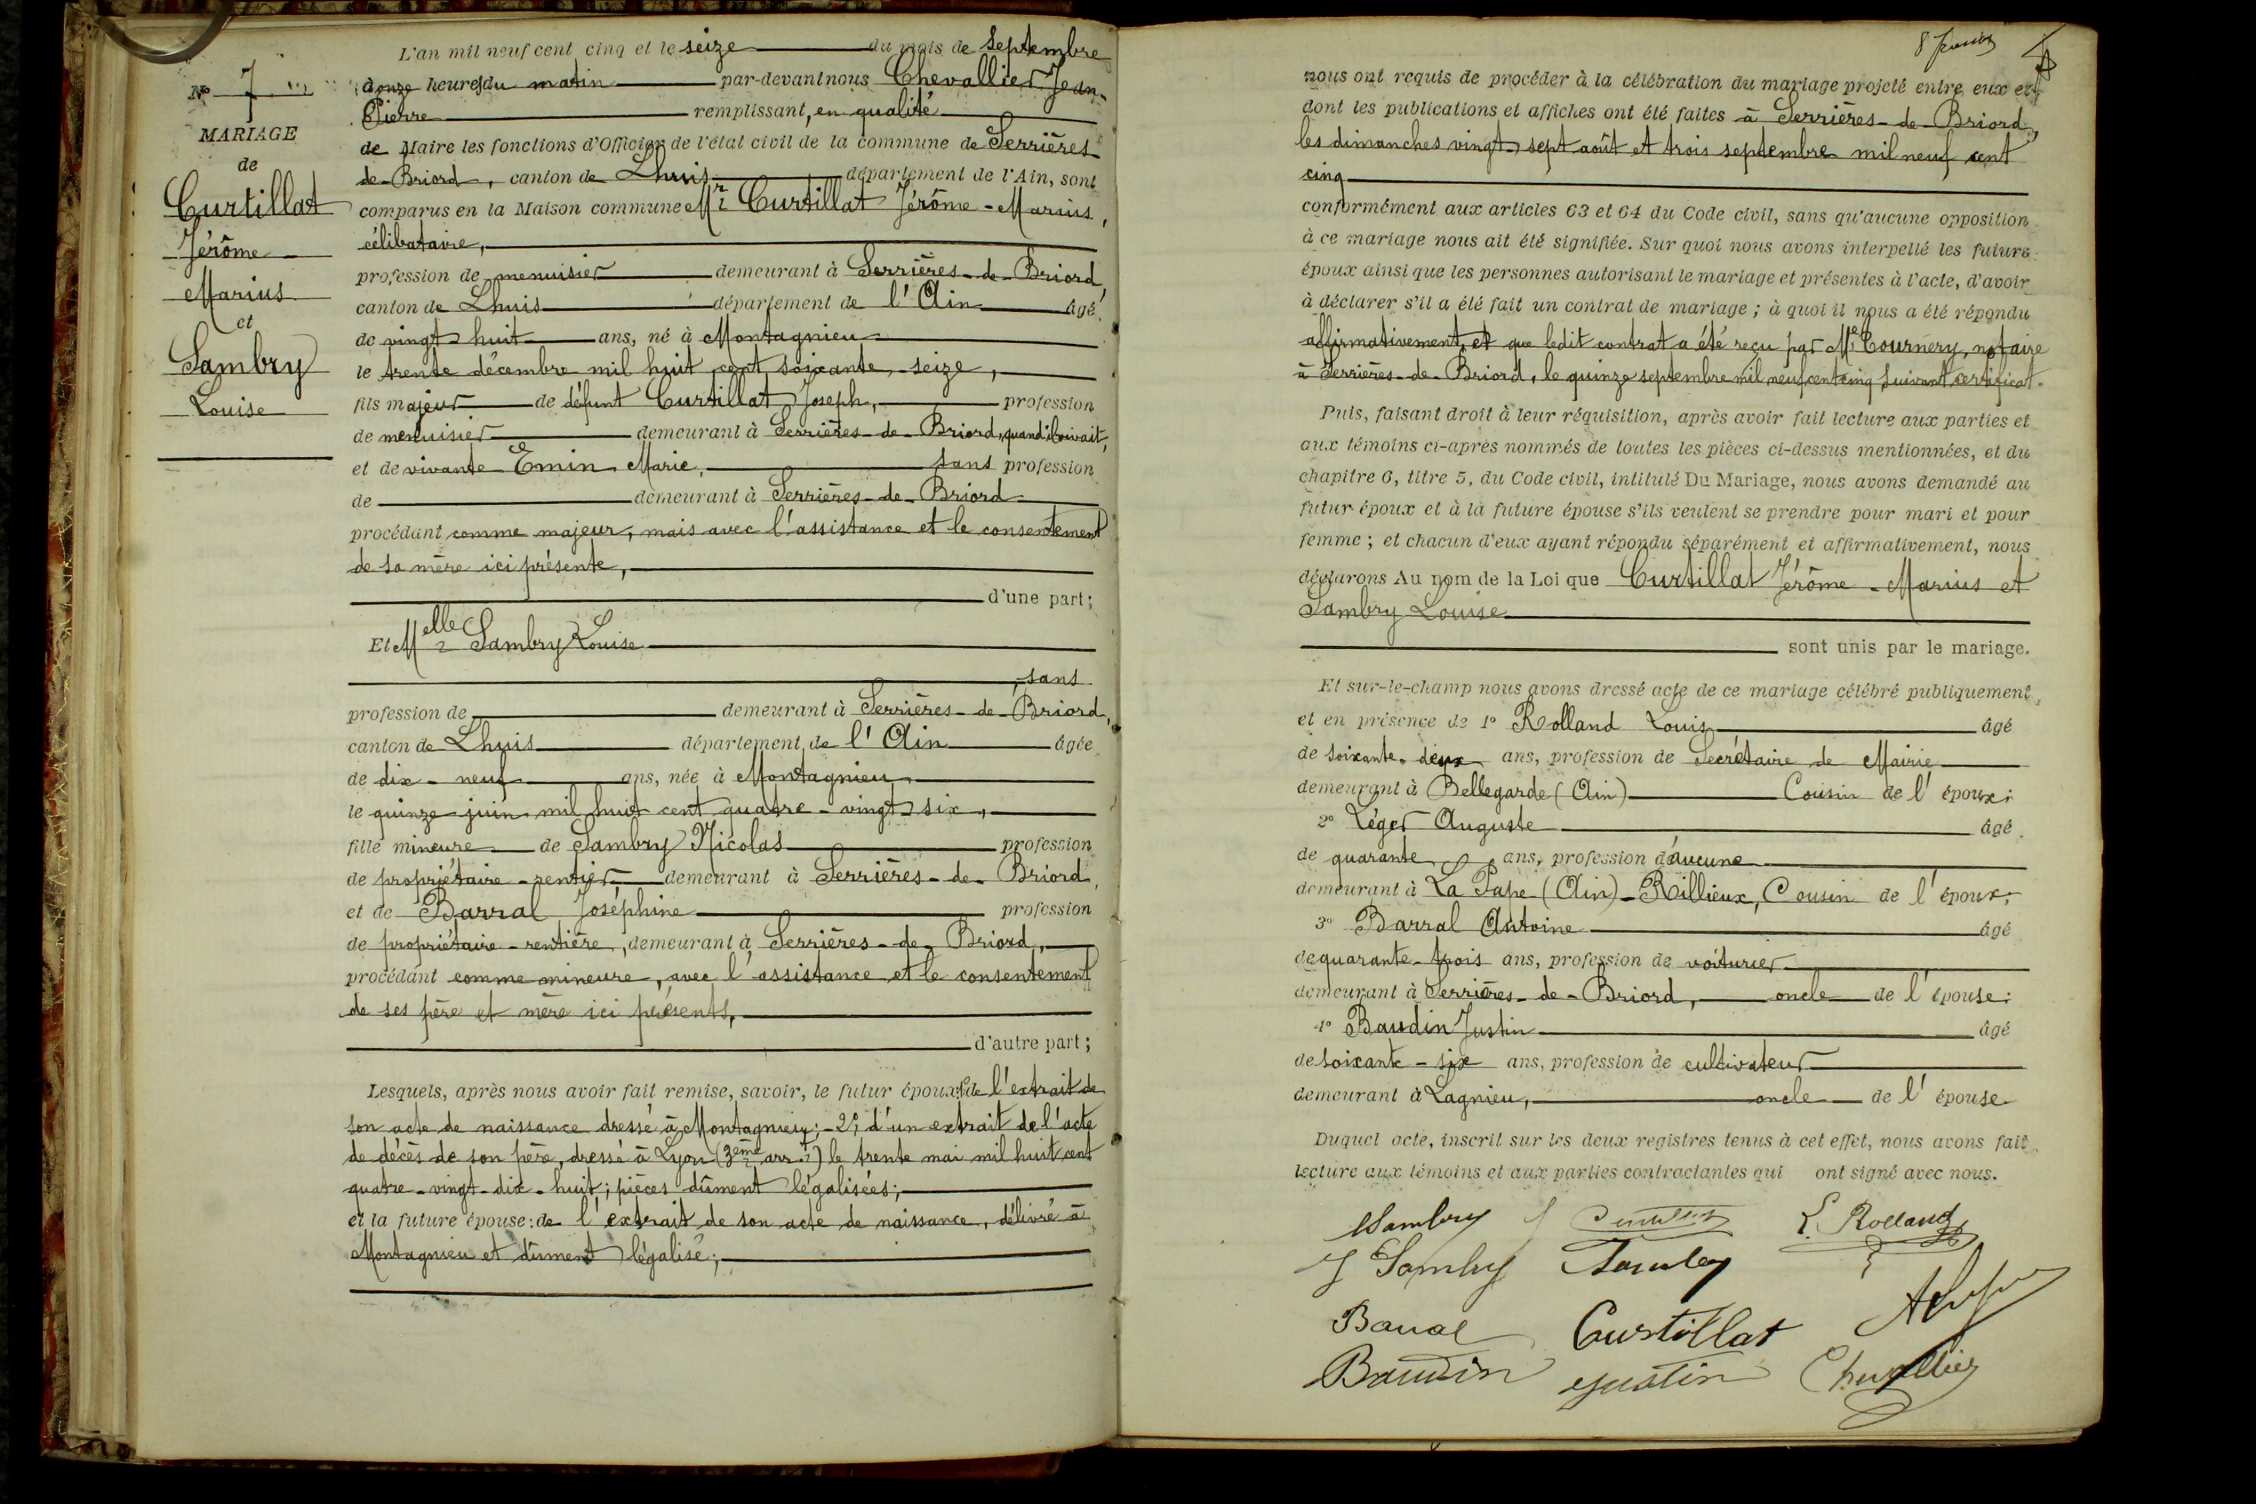 N° 7
MARIAGE
de
Curtillat
Jérôme
Marius
et
Sambry
Louise
L'an mil neuf cent cinq et le seize du mois de Septembre
à onze heures du matin par-devant nous Chevallier Jean-
Pierre remplissant, en qualité
de Maire les fonctions d'Officier de l'état civil de la commune de Serrières-
de-Briord, canton de Lhuis département de l'Ain, sont
comparus en la Maison commune Mr Curtillat Jérôme-Marius,
célibataire,
profession de menuisier demeurant à Serrières-de-Briord,
canton de Lhuis département de l'Ain âgé
de vingt-huit ans, né à Montagnieu
le trente décembre mil huit cent soixante-seize,
fils majeur de défunt Curtillat Joseph, profession
de menuisier demeurant à Serrières-de-Briord, quand il vivait,
et de vivante Emin Marie, sans profession
de demeurant à Serrières-de-Briord
procédant comme majeur, mais avec l'assistance et le consentement
de sa mère ici présente,
d'une part;
Et Melle Sambry Louise
, sans
profession de demeurant à Serrières-de-Briord,
canton de Lhuis département de l'Ain âgée
de dix-neuf ans, née à Montagnieu
le quinze juin mil huit cent quatre-vingt-six,
fille mineure de Sambry Nicolas profession
de propriétaire-rentier demeurant à Serrières-de-Briord,
et de Barral Joséphine profession
de propriétaire-rentière, demeurant à Serrières-de-Briord,
procédant comme mineure, avec l'assistance et le consentement
de ses père et mère ici présents,
d'autre part;
Lesquels, après nous avoir fait remise, savoir, le futur époux: 1° de l'extrait de
son acte de naissance dressé à Montagnieu; - 2°, d'un extrait de l'acte
de décès de son père, dressé à Lyon (3ème arr.t) le trente mai mil huit cent
quatre-vingt-dix-huit; pièces dûment légalisées;
et la future épouse: de l'extrait de son acte de naissance, délivré à
Montagnieu et dûment légalisé;
8
nous ont requis de procéder à la célébration du mariage projeté entre eux et
dont les publications et affiches ont été faites à Serrières-de-Briord,
les dimanches vingt-sept août et trois septembre mil neuf cent
cinq
conformément aux articles 63 et 64 du Code civil, sans qu'aucune opposition
à ce mariage nous ait été signifiée. Sur quoi nous avons interpellé les futurs
époux ainsi que les personnes autorisant le mariage et présentes à l'acte, d'avoir
à déclarer s'il a été fait un contrat de mariage; à quoi il nous a été répondu
affirmativement, et que ledit contrat a été reçu par Me Cournery, notaire
à Serrières-de-Briord, le quinze septembre mil neuf cent cinq suivant certificat.
Puis, faisant droit à leur réquisition, après avoir fait lecture aux parties et
aux témoins ci-après nommés de toutes les pièces ci-dessus mentionnées, et du
chapitre 6, titre 5, du Code civil, intitulé Du Mariage, nous avons demandé au
futur époux et à la future épouse s'ils veulent se prendre pour mari et pour
femme; et chacun d'eux ayant répondu séparément et affirmativement, nous
déclarons Au nom de la Loi que Curtillat Jérôme-Marius et
Sambry Louise
sont unis par le mariage.
Et sur-le-champ nous avons dressé acte de ce mariage célébré publiquement,
et en présence de 1° Rolland Louis âgé
de soixante-deux ans, profession de Secrétaire de Mairie
demeurant à Bellegarde (Ain) Cousin de l'époux;
2° Léger Auguste âgé
de quarante ans, profession d'aucune
demeurant à La Pape (Ain)-Rillieux, Cousin de l'époux;
3° Barral Antoine âgé
de quarante-trois ans, profession de voiturier
demeurant à Serrières-de-Briord, oncle de l'épouse;
4° Baudin Justin âgé
de soixante-six ans, profession de cultivateur
demeurant à Lagnieu, oncle de l'épouse
Duquel acte, inscrit sur les deux registres tenus à cet effet, nous avons fait
lecture aux témoins et aux parties contractantes qui ont signé avec nous.
LSambry J Curtillat L. Rolland
J Sambry Sambry
Barral Curtillat
Baudin Justin Chevallier